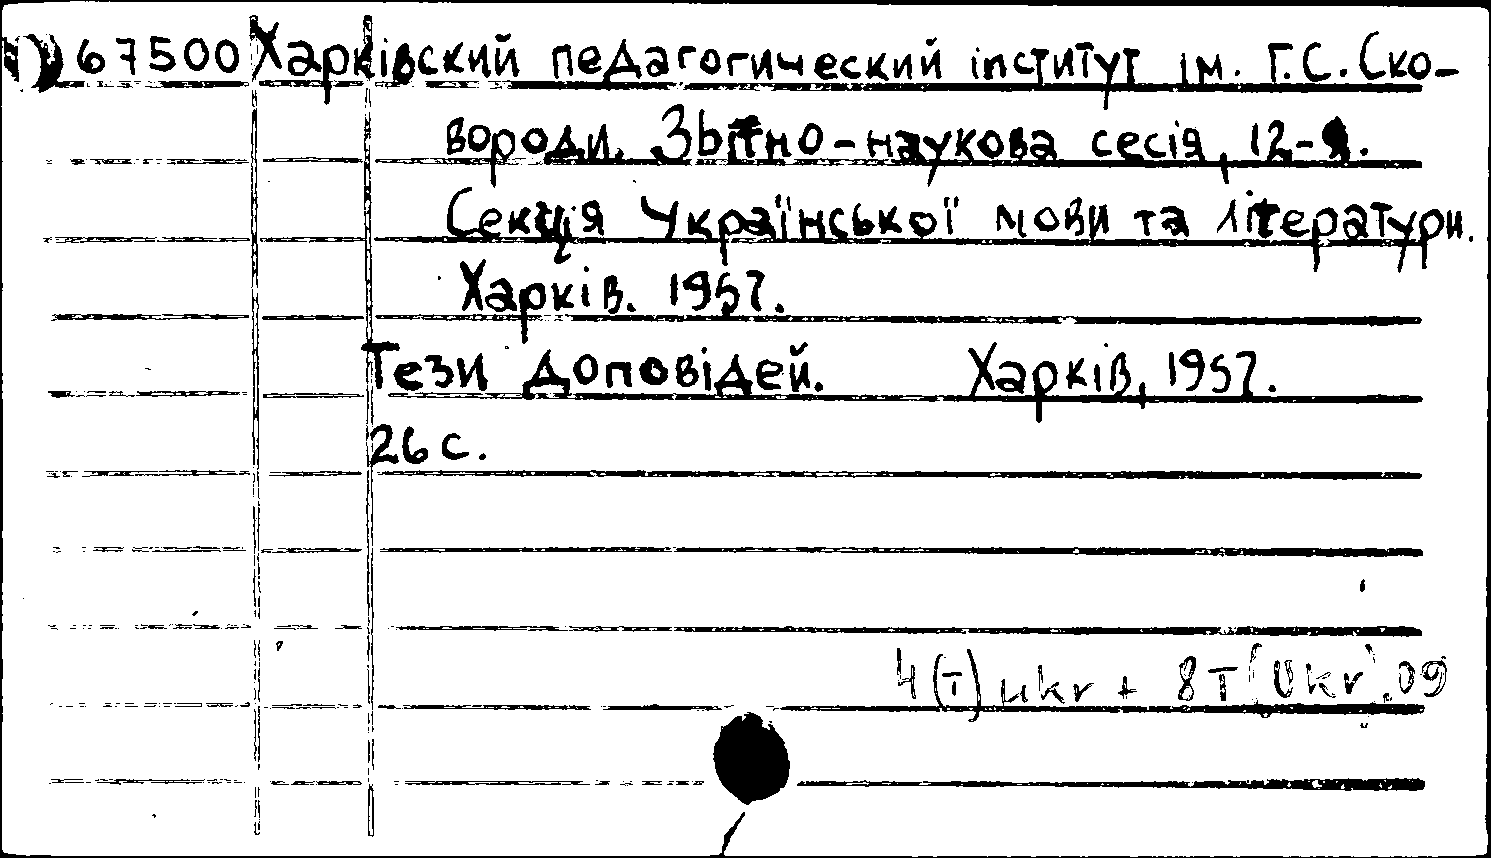 67500 Харківский педагогический інститут ім. Г.С. Ско-
вороди. Звітно-наукова сесія, 12-я.
Секція Української мови та літератури.
Харків. 1957.
Тези доповідей. Харків, 1957.
26 с.
4(T)ukr + 8T(Ukr).09